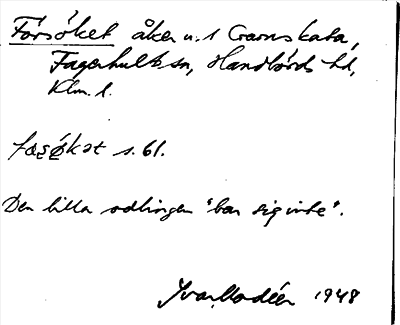 Försöket åker u. 1 Cramskata,
Fagerhults sn, Handbörds hd,
Klm. l.
fɔsǿkət s. 61.
Den lilla odlingen "bar sig inte".
Ivar Modéer 1948